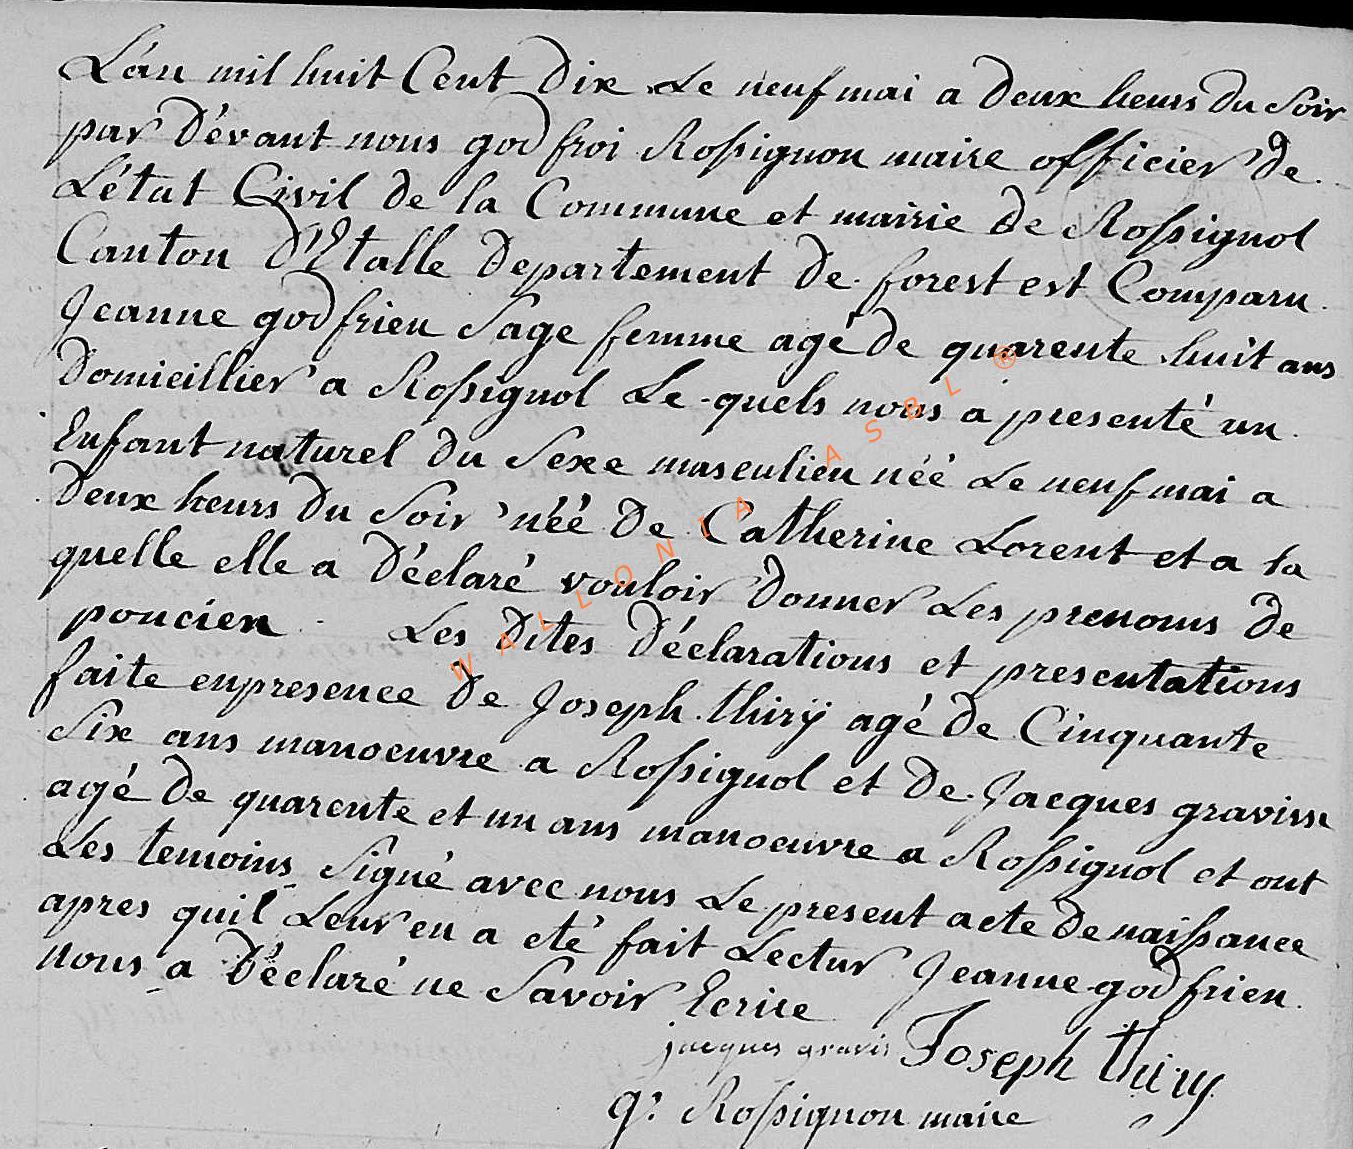 L'an mil huit Cent Dix Le neuf mai a Deux heurs Du Soir
par Dévant nous godfroi Rossignon maire officier De
L'état Civil De la Commune et mairie De Rossignol
Canton D'Etalle Departement De forest est Comparu
Jeanne godfrien Sage femme agé De quarente huit ans
Domicillier a Rossignol Le quels nous a presenté un
Enfant naturel Du Sexe masculien néé Le neuf mai a
Deux heurs Du Soir néé De Catherine Lorent et a la
quelle elle a Déclaré vouloir Donner Les prenoms De
poncien Les Dites Déclarations et presentations
faite enpresence De Joseph thirÿ agé De Cinquante
Six ans manoeuvre a Rossignol et De Jacques gravisse
agé De quarente et un ans manoeuvre a Rossignol et ont
Les temoins Signé avec nous Le present acte De naissance
apres quil Leur en a eté fait Lectur Jeanne godfrien
nous a Déclaré ne Savoir Ecrire
jacques gravis Joseph thiry
g: Rossignon maire
WALLONIA ASBL ®